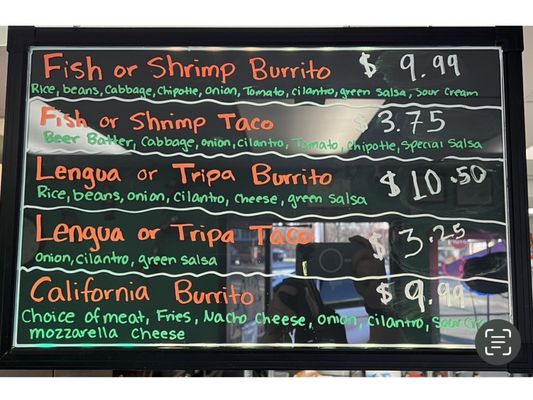 Fish or Shrimp Burrito $ 9.99
Rice, beans, Cabbage, Chipotle, onion, Tomato, cilantro, green salsa, Sour Cream
Fish or Shrimp Taco $ 3.75
Beer Batter, Cabbage, onion, cilantro, Tomato, chipotle, Special Salsa
Lengua or Tripa Burrito $ 10.50
Rice, beans, onion, cilantro, cheese, green salsa
Lengua or Tripa Taco $ 3.25
Onion, cilantro, green salsa
California Burrito $ 9.99
Choice of meat, Fries, Nacho Cheese, onion, cilantro, Sour
mozzarella Cheese